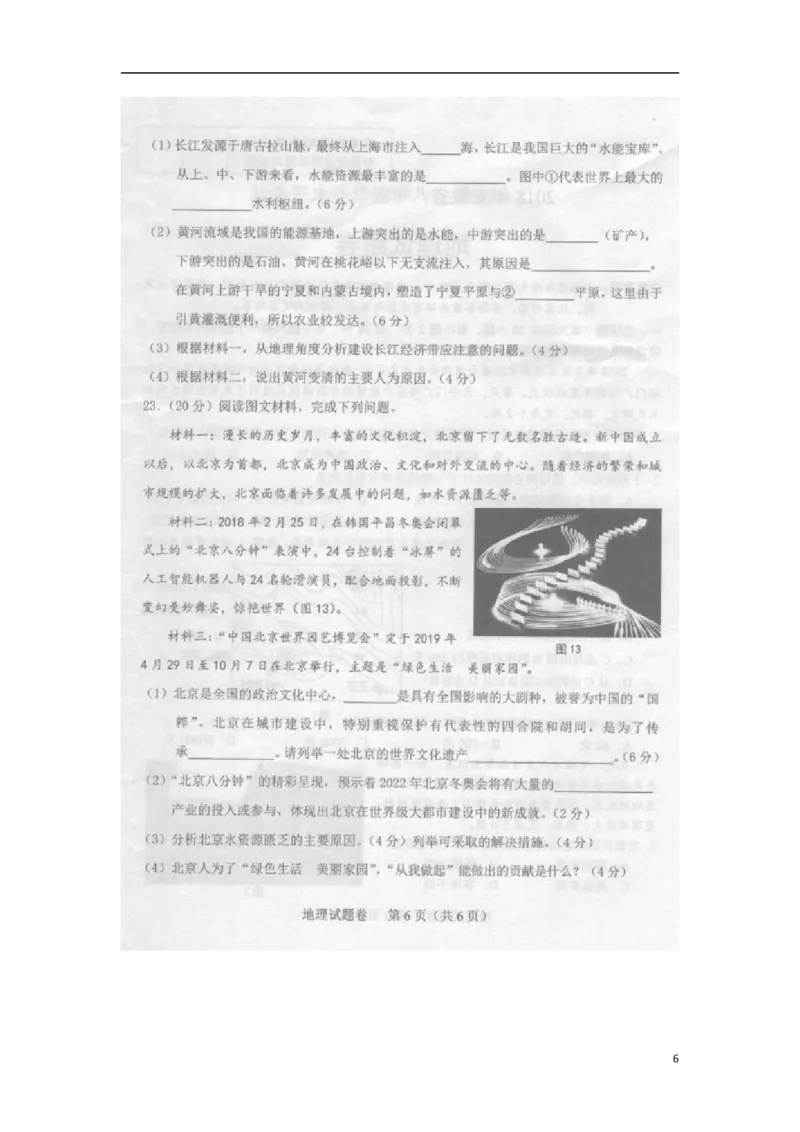 (1)长江发源于唐古拉山脉,最终从上海市注入_____海,长江是我国巨大的“水能宝库”,
从上、中、下游来看,水能资源最丰富的是__________。图中①代表世界上最大的
__________水利枢纽。(6分)
(2)黄河流域是我国的能源基地,上游突出的是水能,中游突出的是_______(矿产),
下游突出的是石油。黄河在桃花峪以下无支流注入,其原因是_______________。
在黄河上游干旱的宁夏和内蒙古境内,塑造了宁夏平原与②________平原,这里由于
引黄灌溉便利,所以农业较发达。(6分)
(3)根据材料一,从地理角度分析建设长江经济带应注意的问题。(4分)
(4)根据材料二,说出黄河变清的主要人为原因。(4分)
23.(20分)阅读图文材料,完成下列问题。
材料一:漫长的历史岁月,丰富的文化积淀,北京留下了无数名胜古迹。新中国成立
以后,以北京为首都,北京成为中国政治、文化和对外交流的中心。随着经济的繁荣和城
市规模的扩大,北京面临着许多发展中的问题,如水资源匮乏等。
材料二:2018年2月25日,在韩国平昌冬奥会闭幕
式上的“北京八分钟”表演中,24台控制着“冰屏”的
人工智能机器人与24名轮滑演员,配合地面投影,不断
变幻曼妙舞姿,惊艳世界(图13)。
图13
材料三:“中国北京世界园艺博览会”定于2019年
4月29日至10月7日在北京举行,主题是“绿色生活 美丽家园”。
(1)北京是全国的政治文化中心,_______是具有全国影响的大剧种,被誉为中国的“国
粹”。北京在城市建设中,特别重视保护有代表性的四合院和胡同,是为了传
承___________。请列举一处北京的世界文化遗产___________________。(6分)
(2)“北京八分钟”的精彩呈现,预示着2022年北京冬奥会将有大量的_____________
产业的投入或参与,体现出北京在世界级大都市建设中的新成就。(2分)
(3)分析北京水资源匮乏的主要原因。(4分)列举可采取的解决措施。(4分)
(4)北京人为了“绿色生活 美丽家园”,“从我做起”能做出的贡献是什么?(4分)
地理试题卷 第6页(共6页)
6